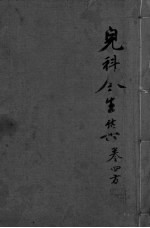 兒科全生集六卷四方